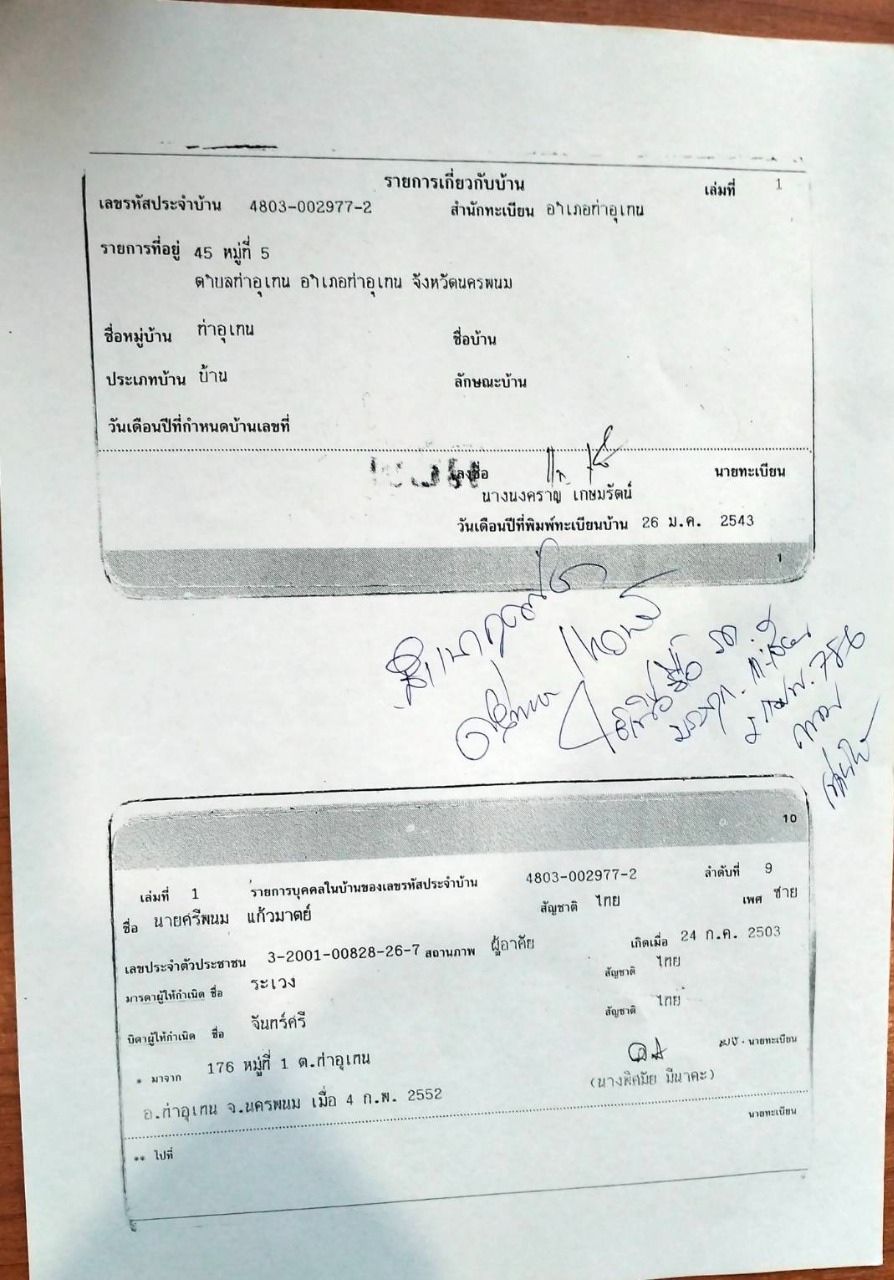 รายการเกี่ยวกับบ้าน เล่มที่ 1
เลขรหัสประจำบ้าน 4803-002977-2 สำนักทะเบียน อำเภอท่าอุเทน
รายการที่อยู่ 45 หมู่ที่ 5
ตำบลท่าอุเทน อำเภอท่าอุเทน จังหวัดนครพนม
ชื่อหมู่บ้าน ท่าอุเทน ชื่อบ้าน
ประเภทบ้าน บ้าน ลักษณะบ้าน
วันเดือนปีที่กำหนดบ้านเลขที่
ลงชื่อ นายทะเบียน
นางนงคราญ เกษมรัตน์
วันเดือนปีที่พิมพ์ทะเบียนบ้าน 26 ม.ค. 2543
1
สำเนาถูกต้อง
786
10
เล่มที่ 1 รายการบุคคลในบ้านของเลขรหัสประจำบ้าน 4803-002977-2 ลำดับที่ 9
ชื่อ นายศรีพนม แก้วมาตย์ สัญชาติ ไทย เพศ ชาย
เลขประจำตัวประชาชน 3-2001-00828-26-7 สถานภาพ ผู้อาศัย เกิดเมื่อ 24 ก.ค. 2503
มารดาผู้ให้กำเนิด ชื่อ ระเวง สัญชาติ ไทย
บิดาผู้ให้กำเนิด ชื่อ จันทร์ศรี สัญชาติ ไทย
* มาจาก 176 หมู่ที่ 1 ต.ท่าอุเทน นายทะเบียน
อ.ท่าอุเทน จ.นครพนม เมื่อ 4 ก.พ. 2552 (นางพิศมัย มีนาคะ)
นายทะเบียน
** ไปที่